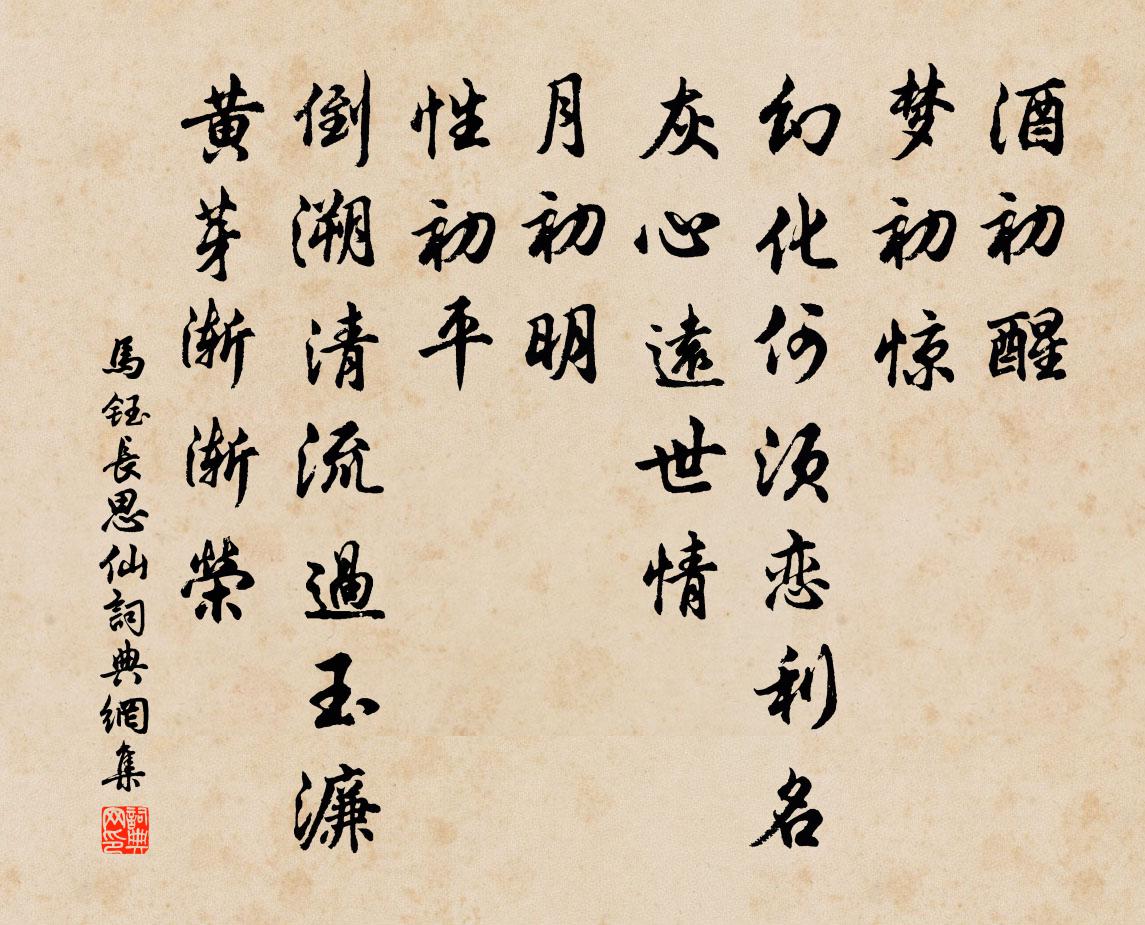 酒初醒
梦初惊
幻化何须恋利名
灰心遠世情
月初明
性初平
倒溯清流過玉濂
黄芽渐渐榮
馬鈺長思仙詞典網集
詞典
网印